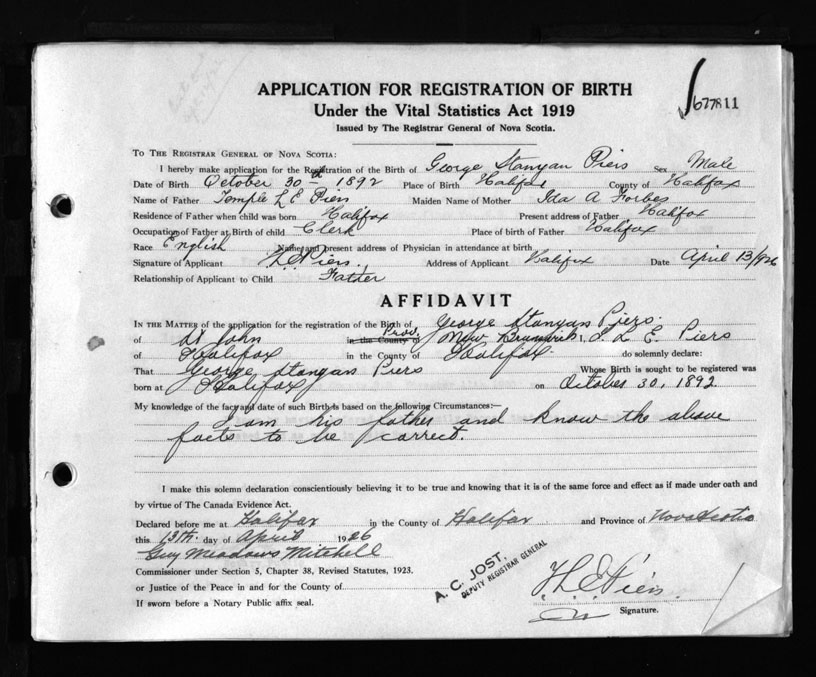 APPLICATION FOR REGISTRATION OF BIRTH
677811
Under the Vital Statistics Act 1919
Issued by The Registrar General of Nova Scotia.
TO THE REGISTRAR GENERAL OF NOVA SCOTIA:
I hereby make application for the Registration of the Birth of George Stanyan Piers Sex Male
Date of Birth October 30th 1892 Place of Birth Halifax County of Halifax
Name of Father Temple L E Piers Maiden Name of Mother Ida A Forbes
Residence of Father when child was born Halifax Present address of Father Halifax
Occupation of Father at Birth of child Clerk Place of birth of Father Halifax
Race English Name and present address of Physician in attendance at birth
Signature of Applicant T.L.E Piers. Address of Applicant Halifax Date April 13/926
Relationship of Applicant to Child Father
AFFIDAVIT
IN THE MATTER of the application for the registration of the Birth of George Stanyan Piers.
of St John in the County of Prov. New Brunswick I, T. L. E. Piers
of Halifax in the County of Halifax. do solemnly declare:
That George Stanyan Piers Whose Birth is sought to be registered was
born at Halifax on October 30, 1892
My knowledge of the fact and date of such Birth is based on the following Circumstances:—
I am his father and know the above
facts to be correct.
I make this solemn declaration conscientiously believing it to be true and knowing that it is of the same force and effect as if made under oath and
by virtue of The Canada Evidence Act.
Declared before me at Halifax in the County of Halifax and Province of Nova Scotia
this 13th. day of April 1926
Guy Meadows Mitchell
Commissioner under Section 5, Chapter 38, Revised Statutes, 1923.
or Justice of the Peace in and for the County of
If sworn before a Notary Public affix seal.
A. C. JOST.
DEPUTY REGISTRAR GENERAL
T.L.E Piers.
Signature.